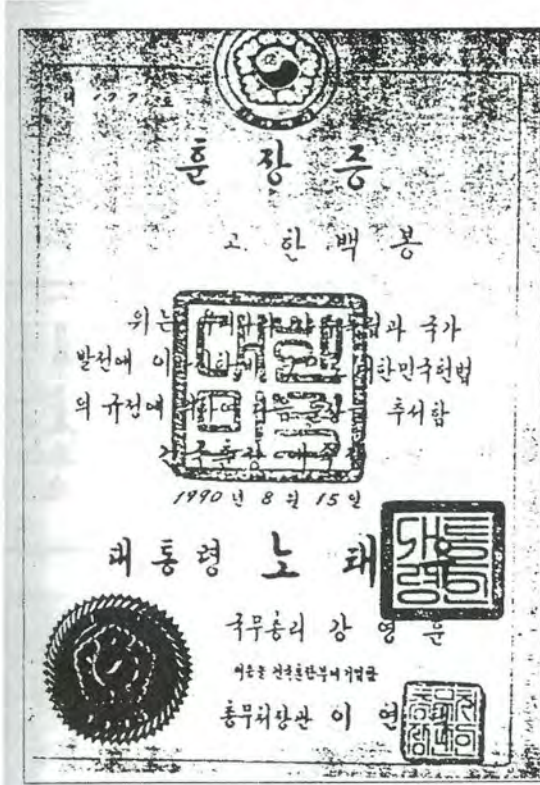 훈장증
고 한백봉
위는 우리나라 자주독립과 국가
발전에 이바지한바 크므로 대한민국헌법
의 규정에 의하여 다음 훈장을 추서함
건국훈장 애족장
1990년 8월 15일
대통령 노태우
국무총리 강영훈
이 증을 건국훈장부에 기입함
총무처장관 이연택